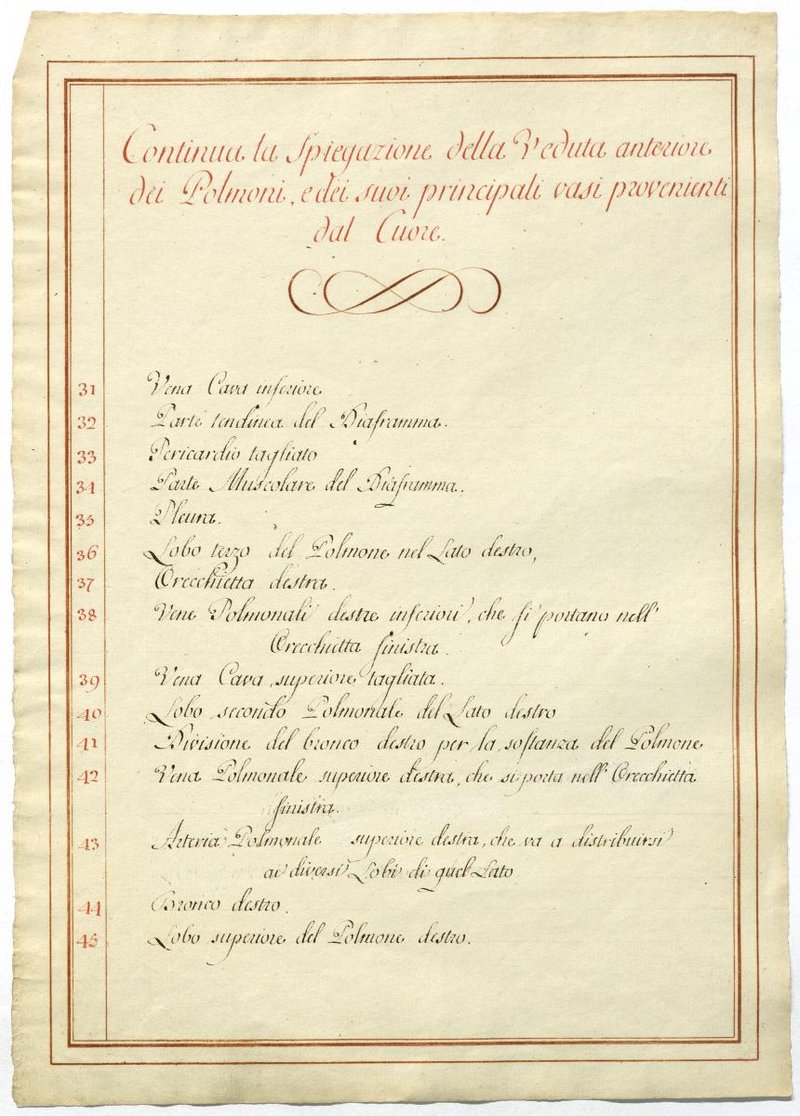 Continua la Spiegazione della Veduta anteriore
dei Polmoni, e dei suoi principali vasi provenienti
dal Cuore.
31 Vena Cava inferiore
32 Parte tendinea del Diaframma.
33 Pericardio tagliato
34 Parte Muscolare del Diaframma.
35 Pleura.
36 Lobo terzo del Polmone nel Lato destro,
37 Orecchietta destra.
38 Vene Polmonali destre inferiori, che si portano nell'
Orecchietta sinistra.
39 Vena Cava superiore tagliata.
40 Lobo secondo Polmonale del Lato destro
41 Divisione del bronco destro per la sostanza del Polmone
42 Vena Polmonale superiore destra, che si porta nell'Orecchietta
sinistra.
43 Arteria Polmonale superiore destra, che va a distribuirsi
ai diversi Lobi di quel Lato
44 Bronco destro.
45 Lobo superiore del Polmone destro.